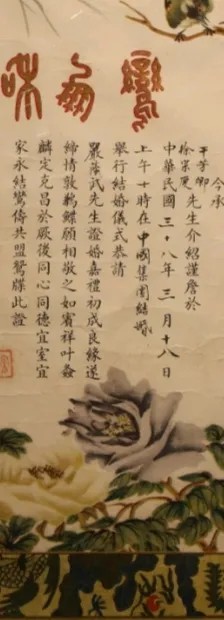 鸞
和
今承
于芳卿
徐宗夏先生介紹謹詹於
中華民國三十八年三月十八日
上午十時在中國集團結婚
舉行結婚儀式恭請
嚴蔭武先生證婚嘉禮初成良緣遂
締情敦鶼鰈願相敬之如賓祥叶螽
麟定克昌於厥後同心同德宜室宜
家永結鸞儔共盟鴛牒此證